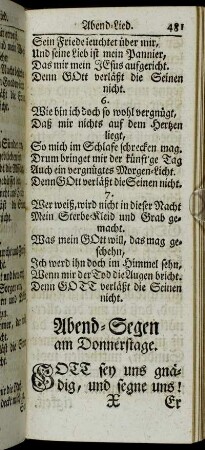 Abend-Lied. 481
Sein Friede leuchtet über mir,
Und seine Lieb ist mein Pannier,
Das mir mein JEsus aufgericht.
Denn GOtt verläßt die Seinen
nicht.
6.
Wie bin ich doch so wohl vergnügt,
Daß mir nichts auf dem Hertzen
liegt,
So mich im Schlafe schrecken mag.
Drum bringet mir der künft'ge Tag
Auch ein vergnügtes Morgen-Licht.
Denn GOtt verläßt die Seinen nicht.
7.
Wer weiß, wird nicht in dieser Nacht
Mein Sterbe-Kleid und Grab ge-
macht.
Was mein GOtt will, das mag ge-
schehn,
Ich werd ihn doch im Himmel sehn,
Wenn mir der Tod die Augen bricht.
Denn GOTT verläßt die Seinen
nicht.
Abend-Segen
am Donnerstage.
GOTT sey uns gnä-
dig, und segne uns!
X Er